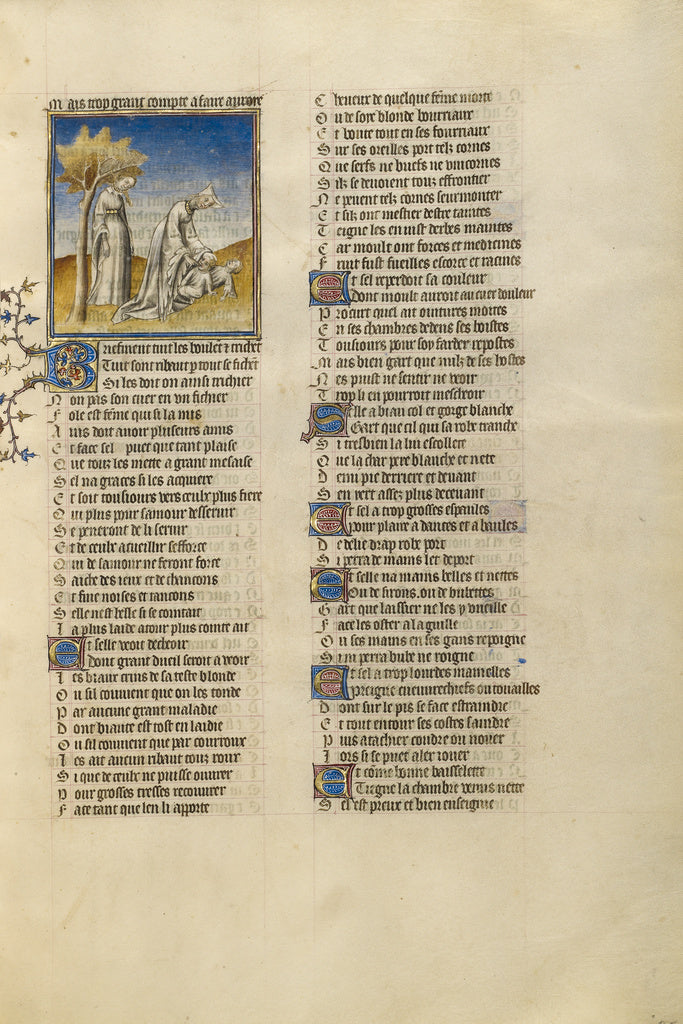 Mais trop grant compte a faire auroie
Briefment tuit les boulent & trichent
Tuit sont ribaut p tout se fichent
Si les doit on ainsi trichier
Non pas son cuer en un fichier
Fole est feme qui si la mis
Ains doit auoir pluseurs amis
Et face sel puet que tant plaise
Que touz les mette a grant mesaise
Sel na graces si les acquiere
Et soit tousiours vers ceulx plus fiere
Qui plus pour samour desseruir
Se peneront de li seruir
Et de ceulx acueillir sefforce
Qui de samour ne feront force
Saiche des ieux et de chancons
Et fuie noises et tancons
Selle nest belle si se cointait
La plus laide atour plus cointe ait
Et selle veoit decheoir
Dont grant dueil seroit a veoir
Les biaux crins de sa teste blonde
Ou sil couuient que on les tonde
Par aucune grant maladie
Dont biaute est tost enlaidie
Ou sil couuient que par courroux
Les ait aucun ribaut touz roux
Si que de ceulx ne puisse ouurer
Pour grosses tresses recouurer
Face tant que len li apporte
Cheueux de quelque feme morte
Ou de soye blonde bourriaux
Et boute tout en ses fourriaux
Sur ses oreilles port telx cornes
Que serfs ne buefs ne vnicornes
Silz se deuoient touz effrontier
Ne peuent telx cornes seurmonter
Et silz ont mestier destre taintes
Teigne les en iust derbes maintes
Car moult ont forces et medecines
Fruit fust fueilles escorce et racines
Et sel reperdoit sa couleur
Dont moult auroit au cuer douleur
Procurt quel ait ointures moites
En ses chambres dedens ses boistes
Tousiours pour soy farder repostes
Mais bien gart que nulz de ses hostes
Nes puist ne sentir ne veoir
Trop li en pourroit mescheoir
Selle a biau col et gorge blanche
Gart que cil qui sa robe tranche
Si tresbien la lui escollete
Que la char pere blanche et nete
Demi pie derriere et deuant
Sen yert assez plus deceuant
Et sel a trop grosses espaules
Pour plaire a dances et a baules
De delie drap robe port
Si perra de mains let deport
Et selle na mains belles et nettes
Ou de sirons ou de bubettes
Gart que laissier ne les y vueille
Face les oster a laguille
Ou ses mains en ses gans repoigne
Si ni perra bube ne roigne
Et sel a trop lourdes mamelles
Preigne cueuurechiefs ou touailles
Dont sur le pis se face estraindre
Et tout entour ses costes saindre
Puis atachier coudre ou nouer
Lors si se puet aler iouer
Et come bonne baisselette
Tiegne la chambre venus nette
Sel est preux et bien enseignie